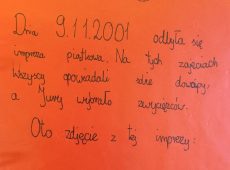 Dnia 9.11.2001 odbyła się
impreza piątkowa. Na tych zajęciach
wszyscy opowiadali swoje dowcipy,
a Jury wybrało zwycięzców.
Oto zdjęcie z tej imprezy: